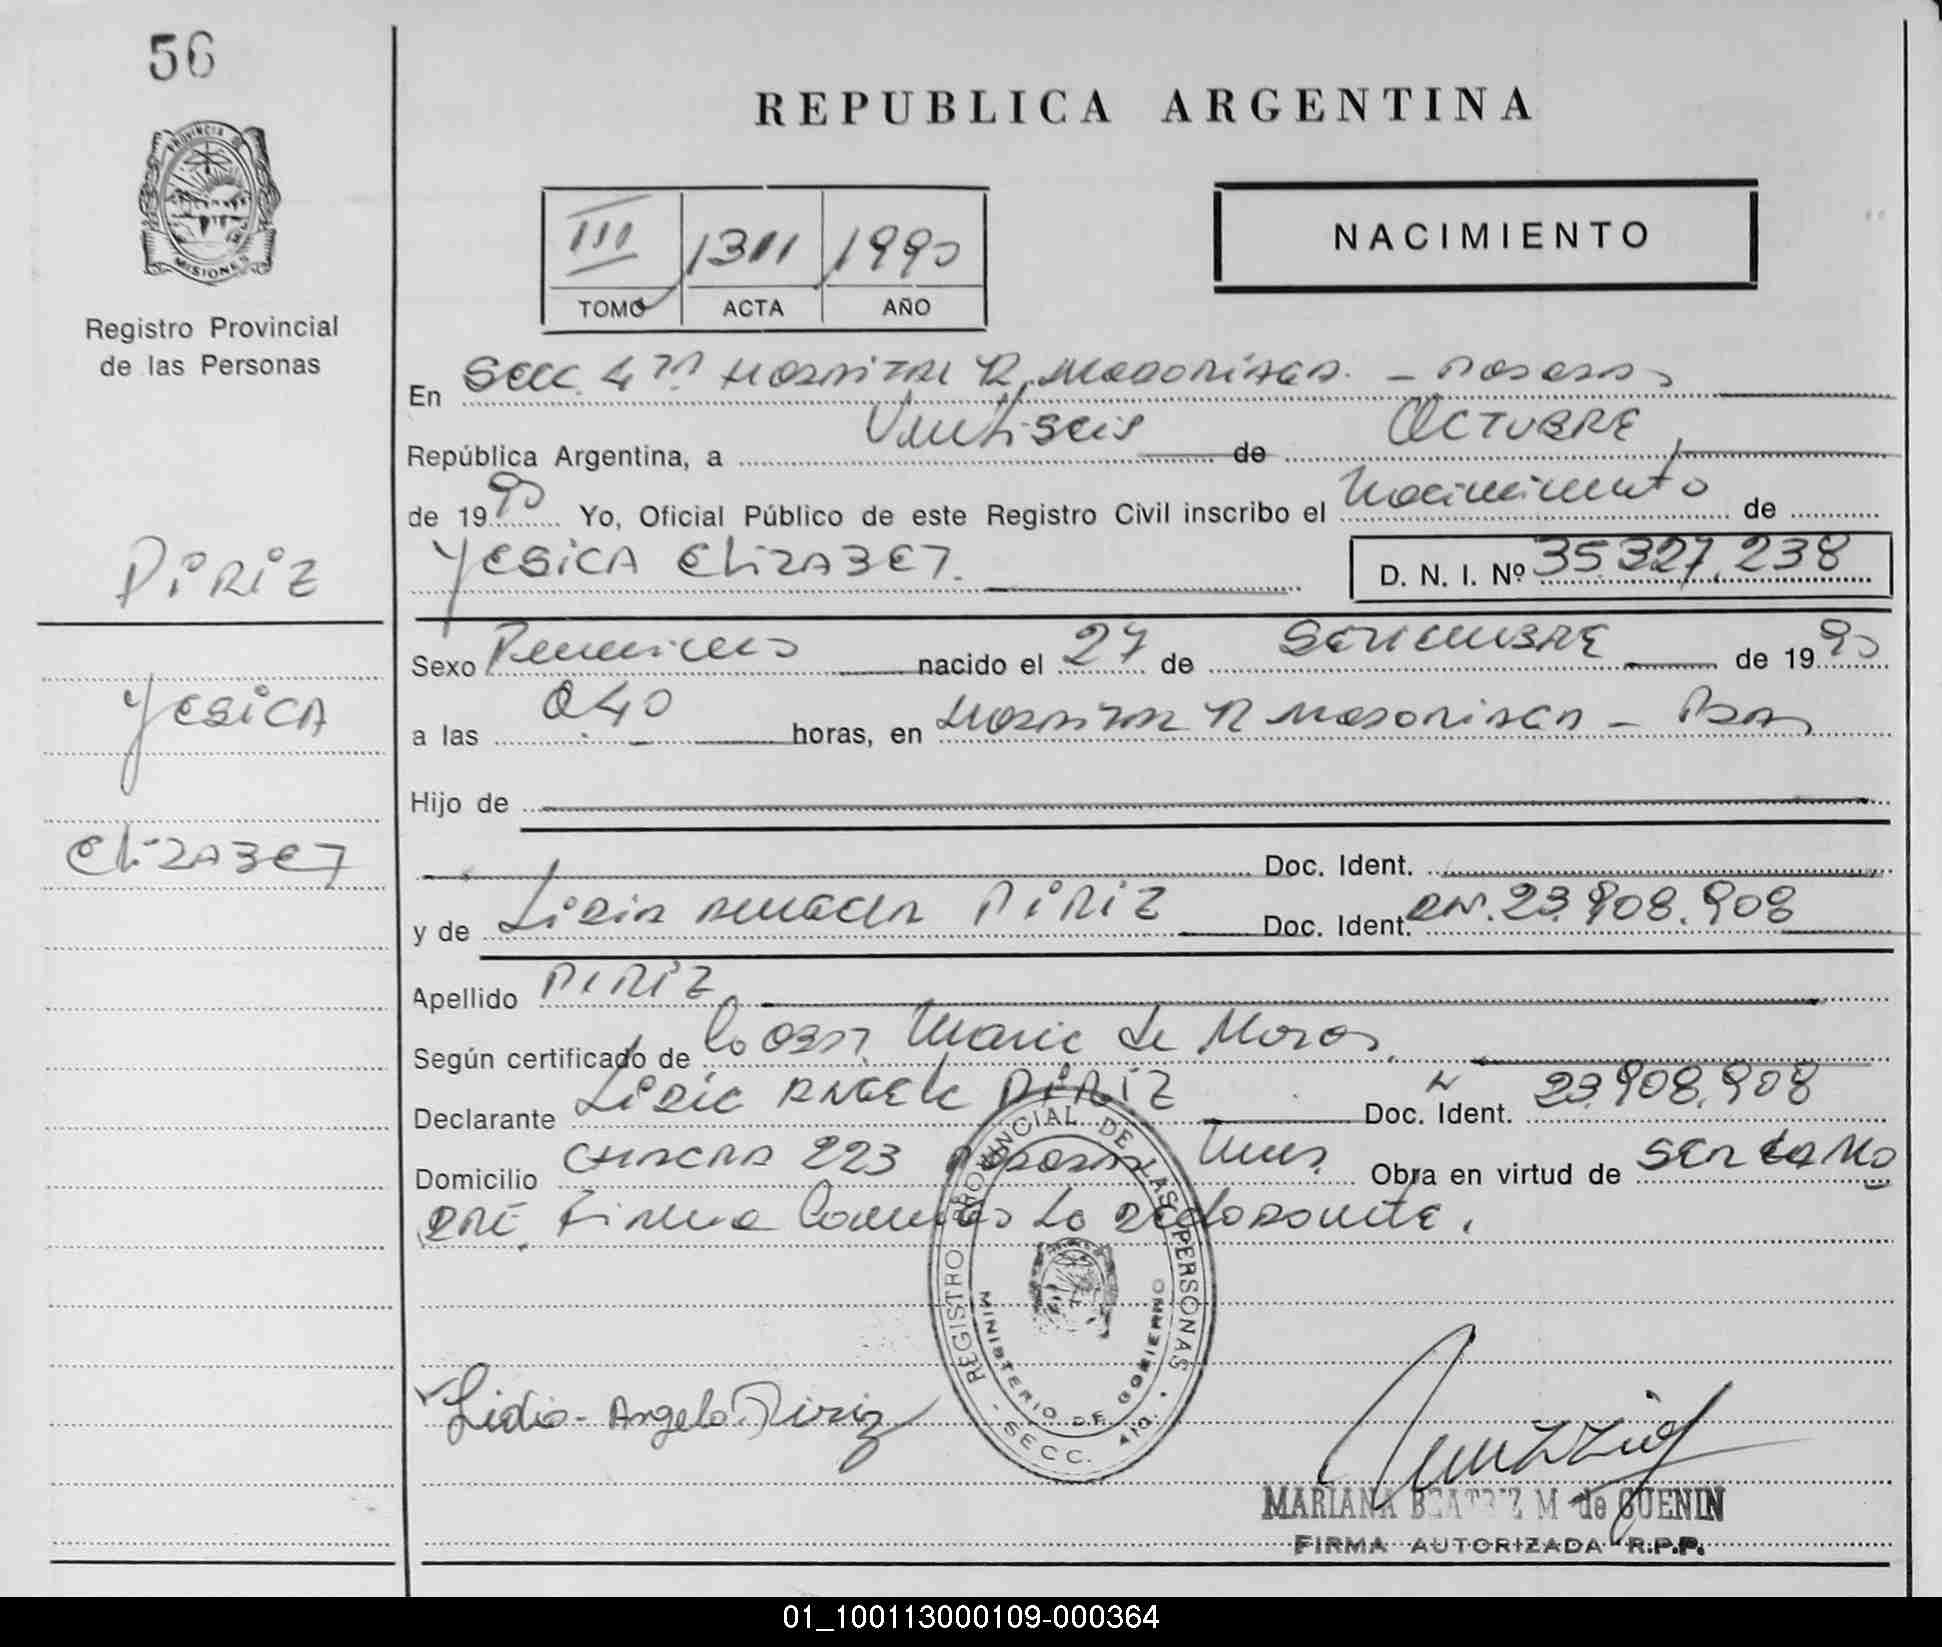 56
PROVINCIA DE
MISIONES
Registro Provincial
de las Personas
REPUBLICA ARGENTINA
III 1311 1990
TOMO ACTA AÑO
NACIMIENTO
En Secc. 4ta Hospital R. Madariaga. - Posadas
República Argentina, a Veintiseis de Octubre,
de 1990 Yo, Oficial Público de este Registro Civil inscribo el Nacimiento de
YESICA ELIZABET. D. N. I. Nº 35.327.238
PIRIZ
YESICA
ELIZABET
Sexo Femenino nacido el 27 de SETIEMBRE de 1990
a las 040 horas, en Hospital R Madariaga - Pdas
Hijo de
Doc. Ident.
y de Lidia Angela PIRIZ Doc. Ident. 23.908.908
Apellido PIRIZ
Según certificado de la Obst. Maria de Moras.
Declarante Lidia Angela PIRIZ Doc. Ident. 23.908.908
Domicilio CHACRA 223 Posadas Mnes. Obra en virtud de ser la Ma
dre. Firma Conmigo la declarante.
REGISTRO PROVINCIAL DE LAS PERSONAS
MINISTERIO DE GOBIERNO
- SECC. 4TA. -
Lidia - Angela Piriz
MARIANA BEATRIZ M de GUENIN
FIRMA AUTORIZADA R.P.P.
01_100113000109-000364